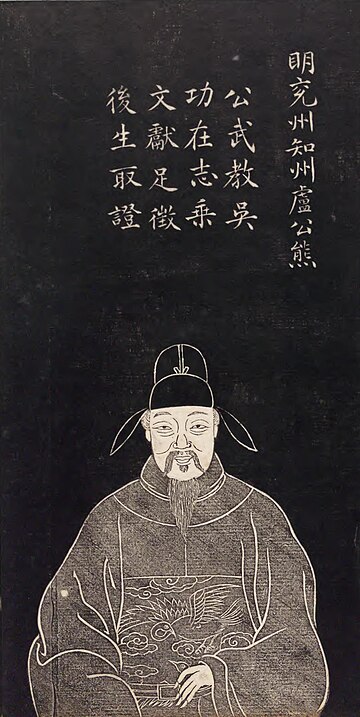 明兖州知州盧公熊
公武教吳
功在志乘
文獻足徵
後生取證